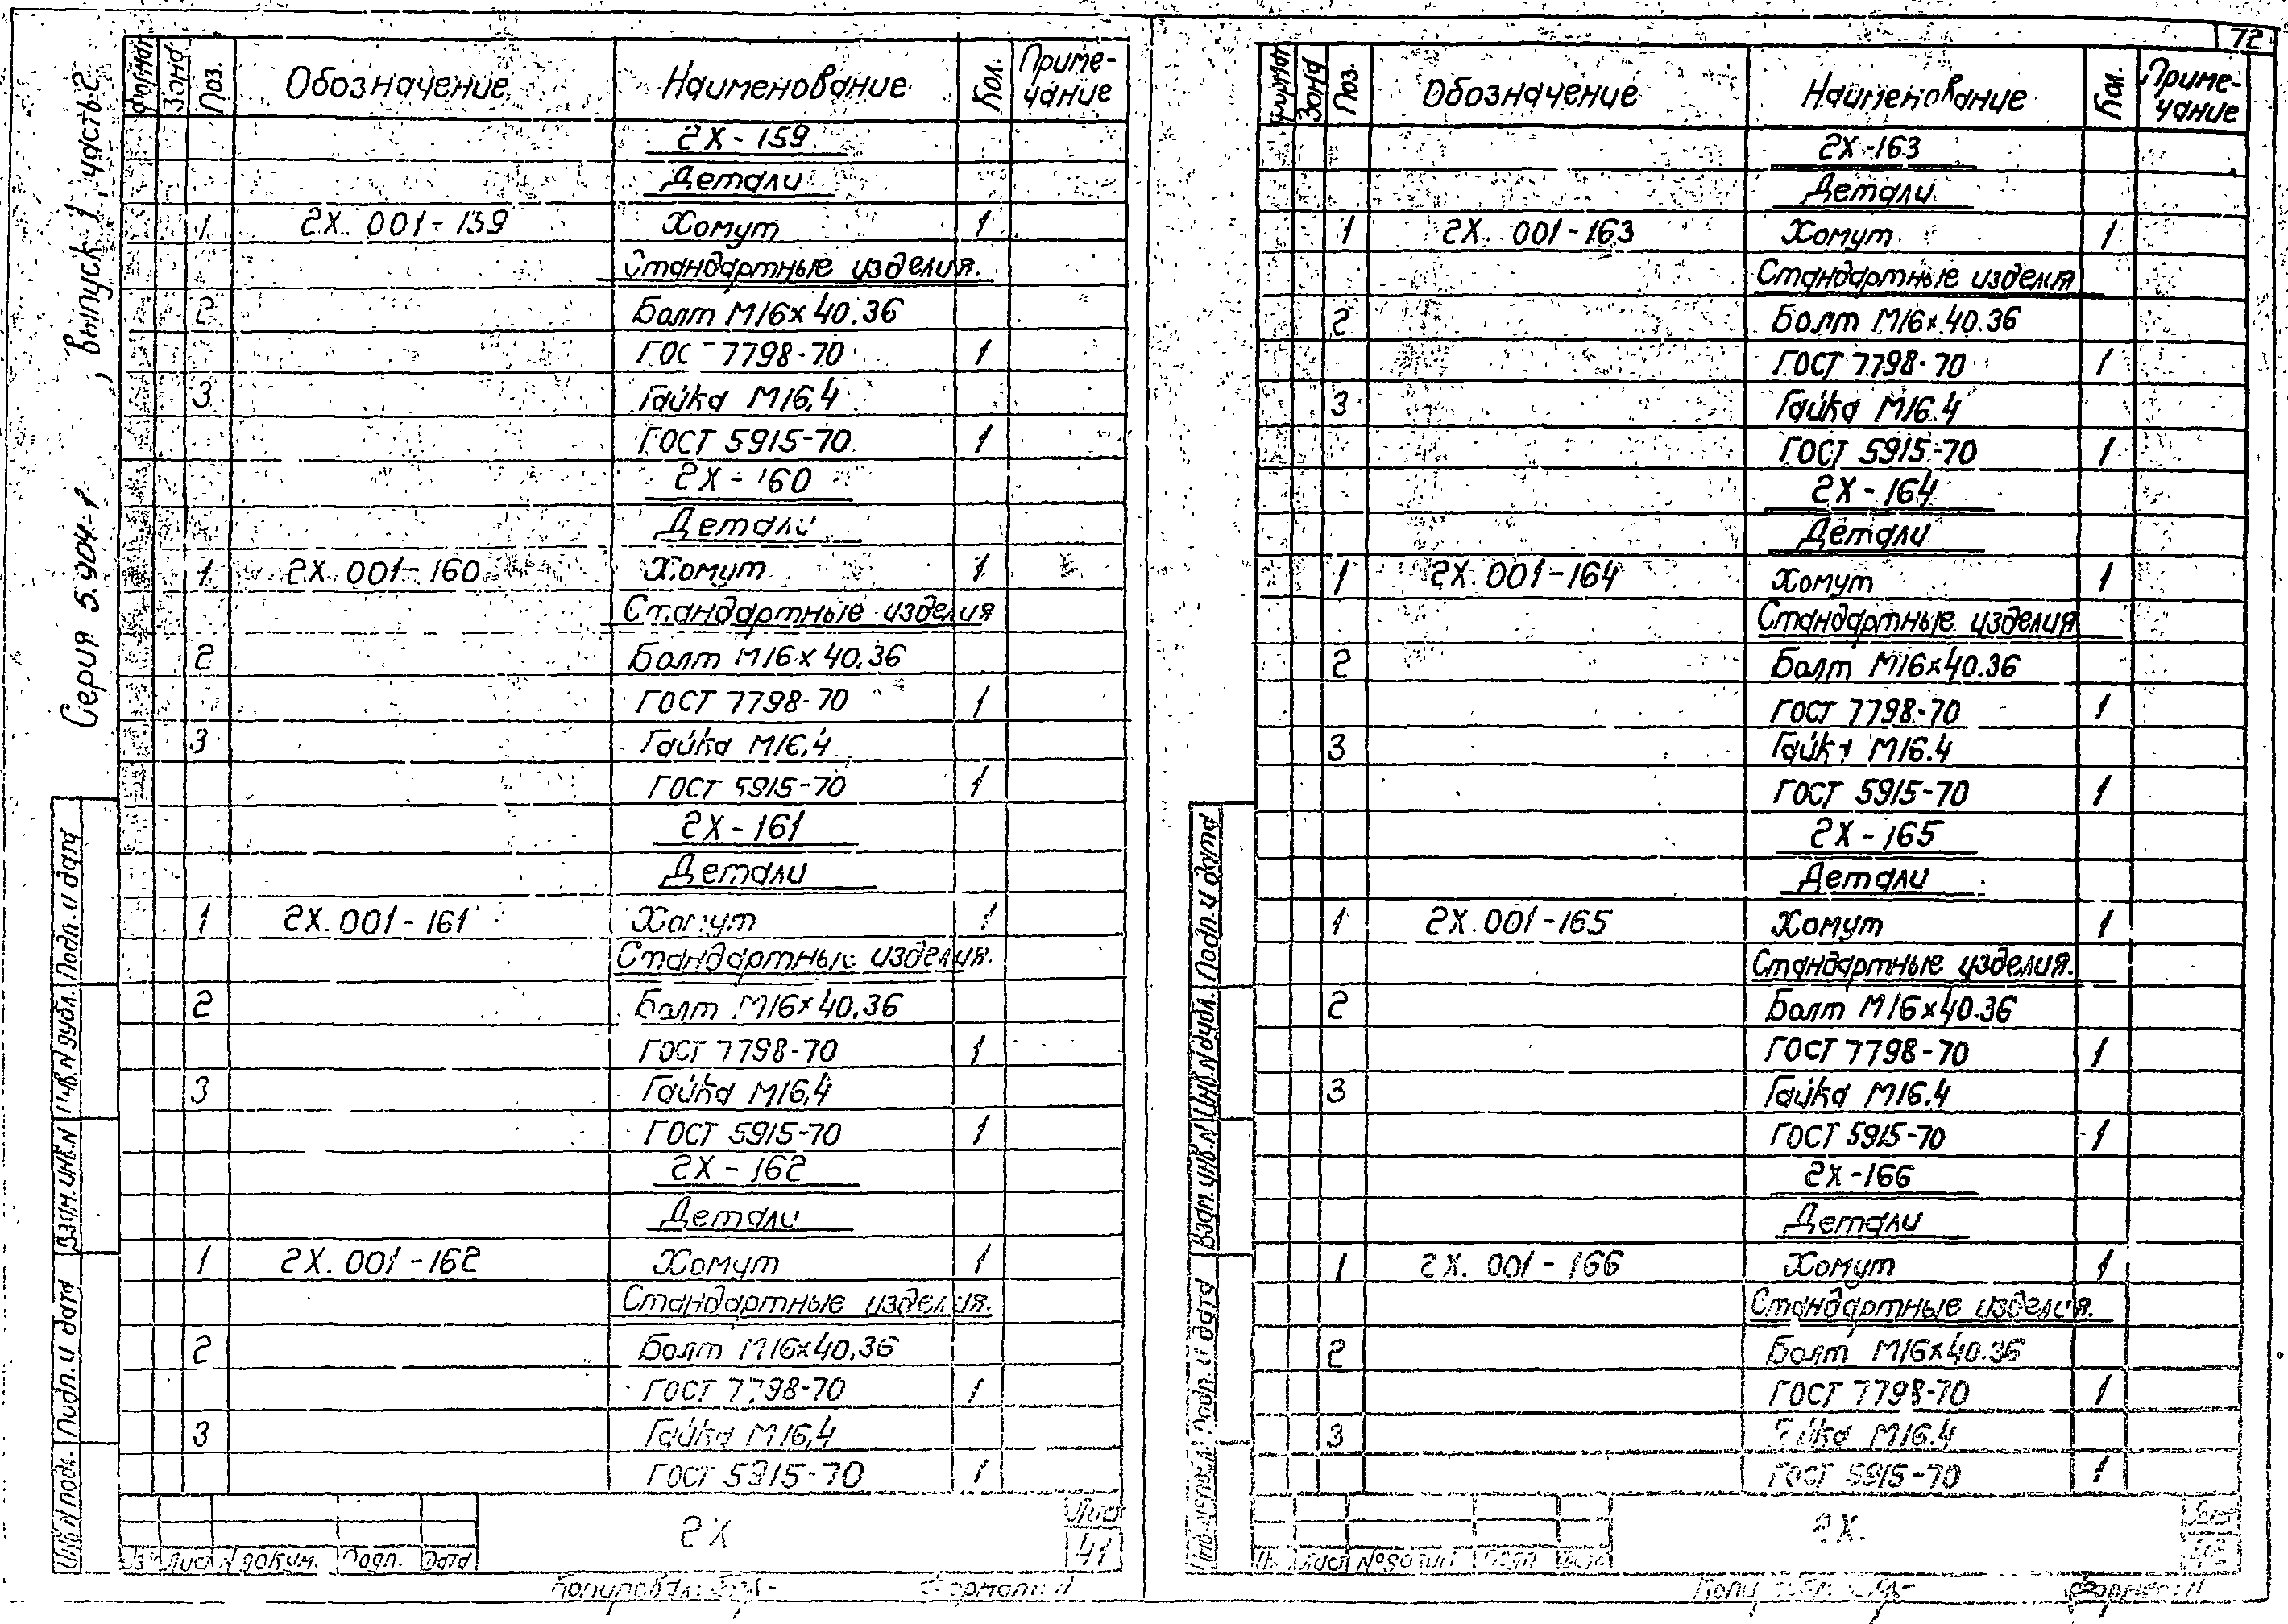 72
Серия 5.904-1 , выпуск 1, часть 2
Формат Зона Поз. Обозначение Наименование Кол. Приме-
чание
2Х - 159
Детали
1 2Х. 001-159 Хомут 1
Стандартные изделия.
2 Болт М16х40.36
ГОСТ 7798-70 1
3 Гайка М16,4
ГОСТ 5915-70 1
2Х - 160
Детали
1 2Х. 001-160 Хомут 1
Стандартные изделия
2 Болт М16х40,36
ГОСТ 7798-70 1
3 Гайка М16,4
ГОСТ 5915-70 1
2Х - 161
Детали
1 2Х. 001-161 Хомут 1
Стандартные изделия.
2 Болт М16х40,36
ГОСТ 7798-70 1
3 Гайка М16,4
ГОСТ 5915-70 1
2Х - 162
Детали
1 2Х. 001-162 Хомут 1
Стандартные изделия.
2 Болт М16х40,36
ГОСТ 7798-70 1
3 Гайка М16,4
ГОСТ 5915-70 1
Инв N подл. Подп. и дата Взам. инв. N Инв. N дубл. Подп. и дата
Лист N докум. Подп. Дата
2Х
Лист
41
Копировал: Формат: 11
Формат Зона Поз. Обозначение Наименование Кол. Приме-
чание
2Х -163
Детали
1 2Х. 001-163 Хомут 1
Стандартные изделия
2 Болт М16х40.36
ГОСТ 7798-70 1
3 Гайка М16.4
ГОСТ 5915-70 1
2Х - 164
Детали
1 2Х. 001-164 Хомут 1
Стандартные изделия
2 Болт М16х40.36
ГОСТ 7798-70 1
3 Гайка М16.4
ГОСТ 5915-70 1
2Х - 165
Детали
1 2Х. 001-165 Хомут 1
Стандартные изделия.
2 Болт М16х40.36
ГОСТ 7798-70 1
3 Гайка М16.4
ГОСТ 5915-70 1
2Х -166
Детали
1 2Х. 001-166 Хомут 1
Стандартные изделия.
2 Болт М16х40.36
ГОСТ 7798-70 1
3 Гайка М16.4
ГОСТ 5915-70 1
Подп. и дата Взам. инв. N Инв. N дубл. Подп. и дата
Лист № докум. Подп. Дата
2Х.
Лист
42
Формат 11